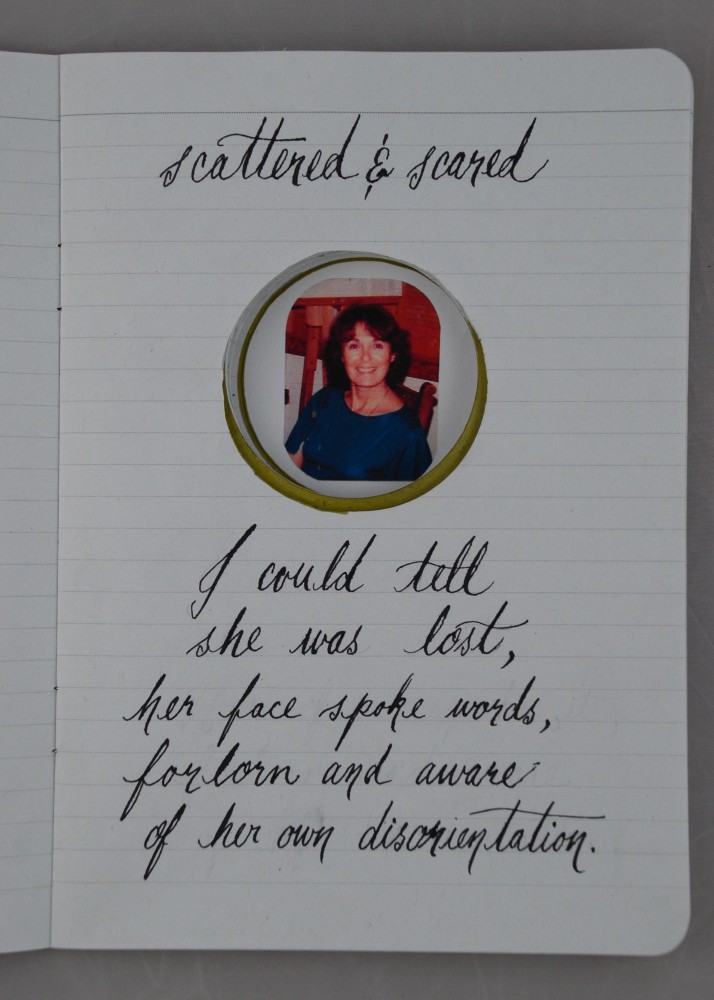 scattered & scared
I could tell
she was lost,
her face spoke words,
forlorn and aware
of her own disorientation.